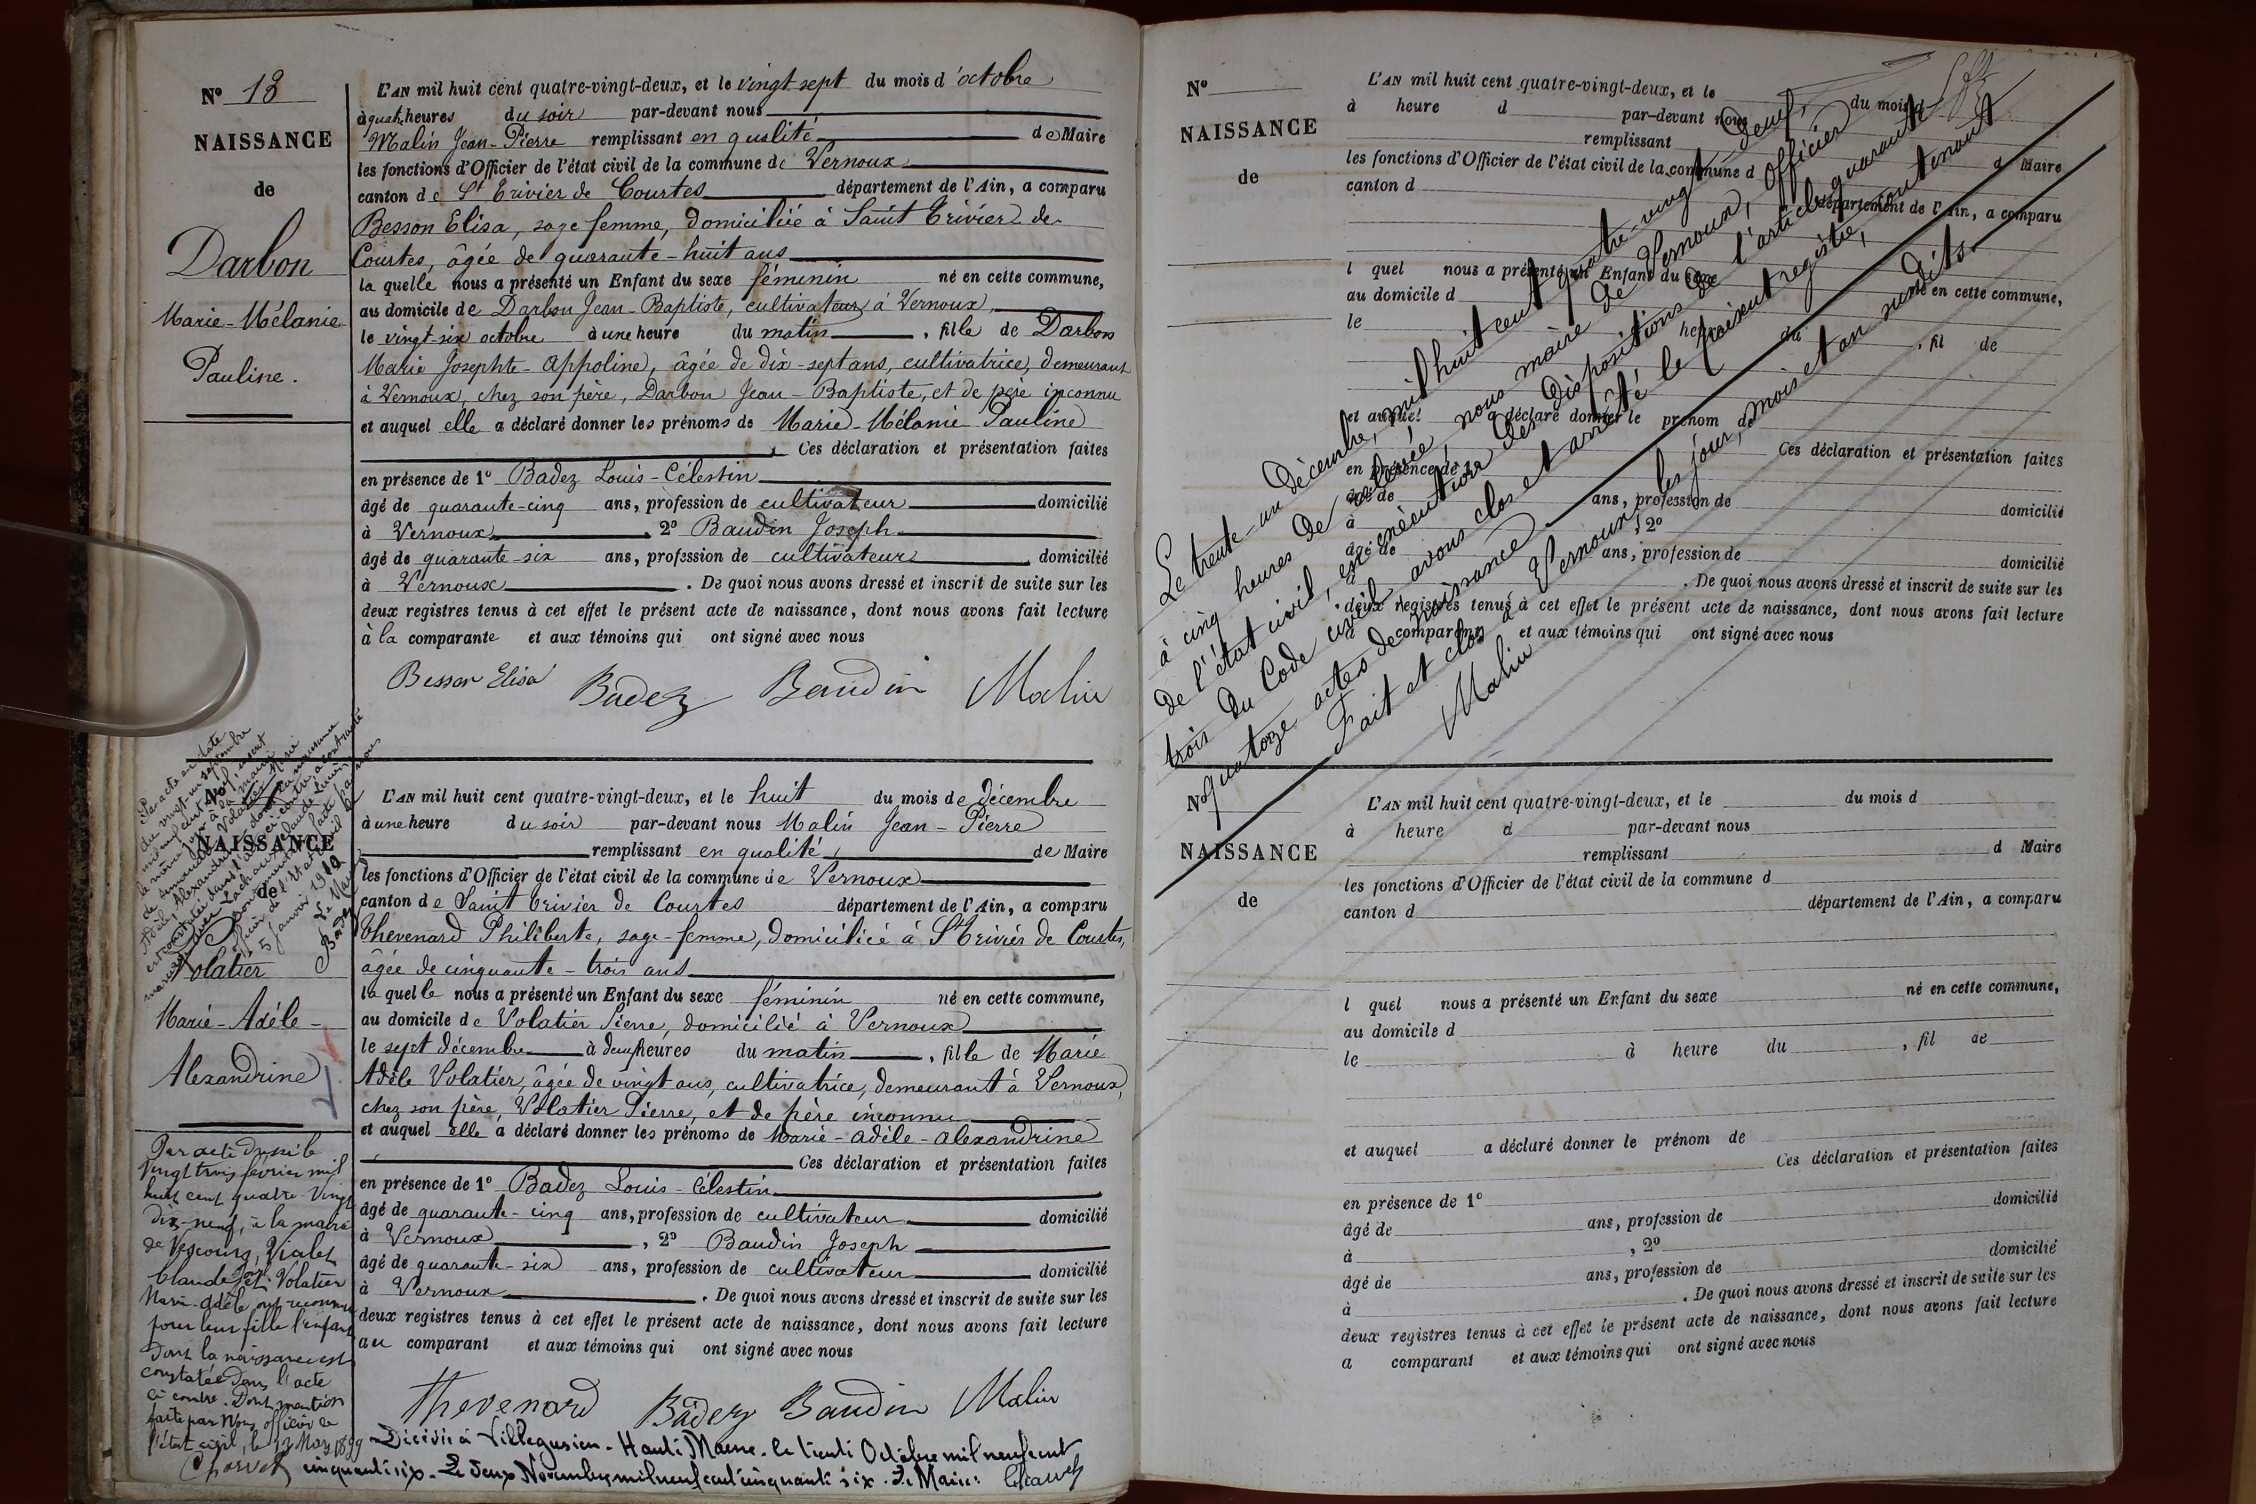 N° 13
NAISSANCE
de
Darbon
Marie-Mélanie
Pauline.
L'AN mil huit cent quatre-vingt-deux, et le vingt sept du mois d'octobre
à quatre heures du soir par-devant nous
Malin Jean-Pierre remplissant en qualité de Maire
les fonctions d'Officier de l'état civil de la commune de Vernoux
canton de St Trivier de Courtes département de l'Ain, a comparu
Besson Elisa, sage femme, domiciliée à Saint Trivier de
Courtes, âgée de quarante-huit ans
la quelle nous a présenté un Enfant du sexe féminin né en cette commune,
au domicile de Darbon Jean-Baptiste, cultivateur à Vernoux,
le vingt-six octobre à une heure du matin, fille de Darbon
Marie Josephte-Appoline, âgée de dix-sept ans, cultivatrice, demeurant
à Vernoux, chez son père, Darbon Jean-Baptiste, et de père inconnu
et auquel elle a déclaré donner les prénoms de Marie-Mélanie Pauline
Ces déclaration et présentation faites
en présence de 1° Badez Louis-Célestin
âgé de quarante-cinq ans, profession de cultivateur domicilié
à Vernoux, 2° Baudin Joseph
âgé de quarante-six ans, profession de cultivateur domicilié
à Vernoux. De quoi nous avons dressé et inscrit de suite sur les
deux registres tenus à cet effet le présent acte de naissance, dont nous avons fait lecture
à la comparante et aux témoins qui ont signé avec nous
Besson Elisa Badez Baudin Malin
NAISSANCE
de
Volatier
Marie-Adèle-
Alexandrine
L'AN mil huit cent quatre-vingt-deux, et le huit du mois de décembre
à une heure du soir par-devant nous Malin Jean-Pierre
remplissant en qualité de Maire
les fonctions d'Officier de l'état civil de la commune de Vernoux
canton de Saint Trivier de Courtes département de l'Ain, a comparu
Thevenard Philiberte, sage-femme, domiciliée à St Trivier de Courtes,
âgée de cinquante-trois ans
la quelle nous a présenté un Enfant du sexe féminin né en cette commune,
au domicile de Volatier Pierre, domicilié à Vernoux
le sept décembre à deux heures du matin, fille de Marie
Adèle Volatier, âgée de vingt ans, cultivatrice, demeurant à Vernoux,
chez son père, Volatier Pierre, et de père inconnu
et auquel elle a déclaré donner les prénoms de Marie-adèle-alexandrine
Ces déclaration et présentation faites
en présence de 1° Badez Louis-Célestin
âgé de quarante-cinq ans, profession de cultivateur domicilié
à Vernoux, 2° Baudin Joseph
âgé de quarante-six ans, profession de cultivateur domicilié
à Vernoux. De quoi nous avons dressé et inscrit de suite sur les
deux registres tenus à cet effet le présent acte de naissance, dont nous avons fait lecture
au comparant et aux témoins qui ont signé avec nous
Thevenard Badez Baudin Malin
Par acte dressé le
vingt trois février mil
huit cent quatre-vingt
dix-neuf, à la mairie
de Vescours, Vialet
Claude et Volatier
Marie-Adèle ont reconnu
pour leur fille l'enfant
dont la naissance est
constatée dans l'acte
ci contre. Dont mention
faite par Nous officier de
l'état civil, le 12 Mars 1899
Décédée à Villegusien-Haute Marne-le trente Octobre mil neuf cent
cinquante six. Le deux Novembre mil neuf cent cinquante six. Le Maire:
N°
NAISSANCE
de
L'AN mil huit cent quatre-vingt-deux, et le du mois d
à heure d par-devant nous
remplissant d Maire
les fonctions d'Officier de l'état civil de la commune d
canton d département de l'Ain, a comparu
l quel nous a présenté un Enfant du sexe né en cette commune,
au domicile d
le heure du, fil de
et auquel a déclaré donner le prénom de
Ces déclaration et présentation faites
en présence de 1°
âgé de ans, profession de domicilié
à, 2°
âgé de ans, profession de domicilié
à. De quoi nous avons dressé et inscrit de suite sur les
deux registres tenus à cet effet le présent acte de naissance, dont nous avons fait lecture
a comparant et aux témoins qui ont signé avec nous
Le trente-un décembre, mil huit cent quatre-vingt deux,
à cinq heures de relevée, nous maire de Vernoux, officier
de l'état civil, en exécution des dispositions de l'article quarante
trois du Code civil avons clos et arrêté le présent registre, contenant
quatorze actes de naissance
Fait et clos à Vernoux, les jour, mois et an susdits.
Malin
N°
NAISSANCE
de
L'AN mil huit cent quatre-vingt-deux, et le du mois d
à heure d par-devant nous
remplissant d Maire
les fonctions d'Officier de l'état civil de la commune d
canton d département de l'Ain, a comparu
l quel nous a présenté un Enfant du sexe né en cette commune,
au domicile d
le à heure du, fil de
et auquel a déclaré donner le prénom de
Ces déclaration et présentation faites
en présence de 1°
domicilié
âgé de ans, profession de
à, 2°
domicilié
âgé de ans, profession de
à. De quoi nous avons dressé et inscrit de suite sur les
deux registres tenus à cet effet le présent acte de naissance, dont nous avons fait lecture
a comparant et aux témoins qui ont signé avec nous